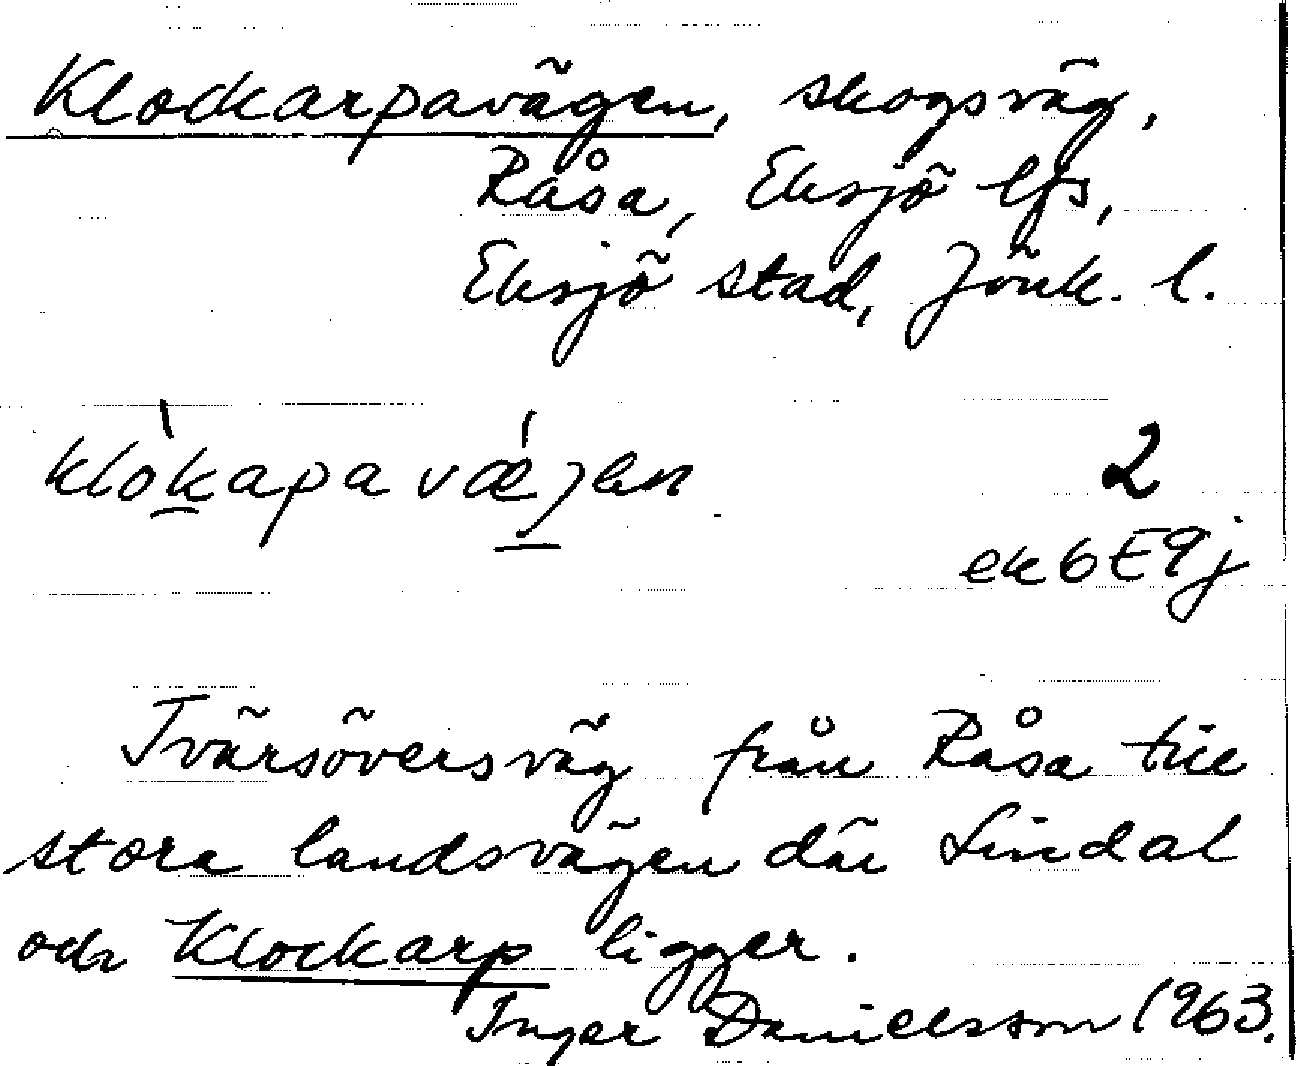 Klockarpavägen, skogsväg,
Råsa, Eksjö lfs,
Eksjö stad, Jönk. l.
klòkapavǽjen 2
ek 6E9j
Tvärsöversväg från Råsa till
stora landsvägen där Lindal
och Klockarp ligger.
Inger Danielsson 1963.